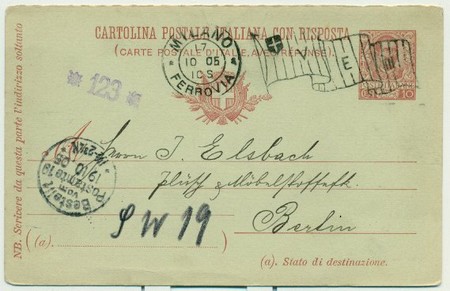 CARTOLINA POSTALE ITALIANA CON RISPOSTA
(CARTE POSTALE D'ITALIE, AVEC RÉPONSE)
MILANO
17
10 05
10 S
FERROVIA
V E III
10
* 123 *
Herrn J. Elsbach
Plüsch & Möbelstoffabk
Berlin
S W 19
Bestellt
vom
Postamte 19
19/10
05
NB. Scrivere da questa parte l'indirizzo soltanto
(a)
(a). Stato di destinazione.